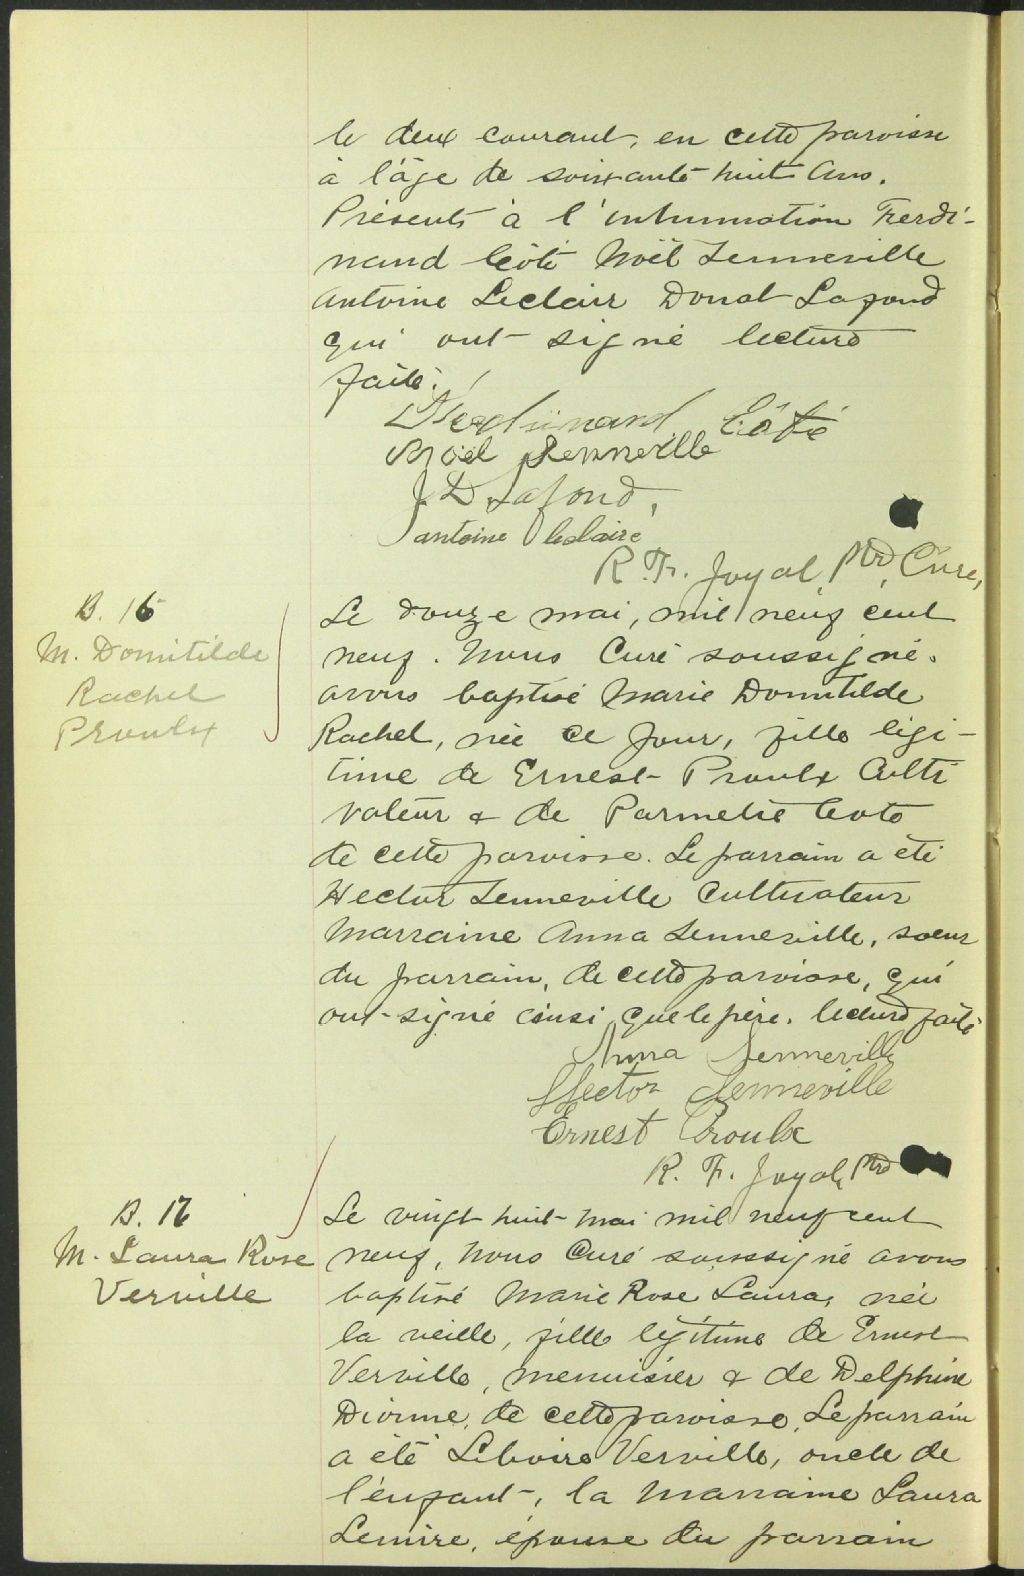 le deux courant, en cette paroisse
à l'âge de soixante huit ans.
Présents à l'inhumation Ferdi-
nand Côté Noël Senneville
Antoine Leclair Donat Lafond
qui ont signé lecture
faite.
Ferdinand Côté
Noël Senneville
J D Lafond,
Antoine Leclaire
R. F. Joyal, Ptre, Curé,
B. 16
M. Domitilde
Rachel
Proulx
Le douze mai, mil neuf cent
neuf. Nous Curé soussigné.
avons baptisé Marie Domitilde
Rachel, née ce jour, fille légi-
time de Ernest Proulx Culti
vateur & de Parmelie Coté
de cette paroisse. Le parrain a été
Hector Senneville Cultivateur
Marraine Anna Senneville, soeur
du parrain, de cette paroisse, qui
ont signé ainsi que le père. lecture faite
Anna Senneville
Hector Senneville
Ernest Proulx
R. F. Joyal, Ptre
B. 17
M. Laura Rose
Verville
Le vingt huit mai mil neuf cent
neuf, Nous Curé soussigné avons
baptisé Marie Rose Laura, née
la veille, fille légitime de Ernest
Verville, menuisier & de Delphine
Dionne, de cette paroisse. Le parrain
a été Liboire Verville, oncle de
l'enfant, la marraine Laura
Lemire, épouse du parrain